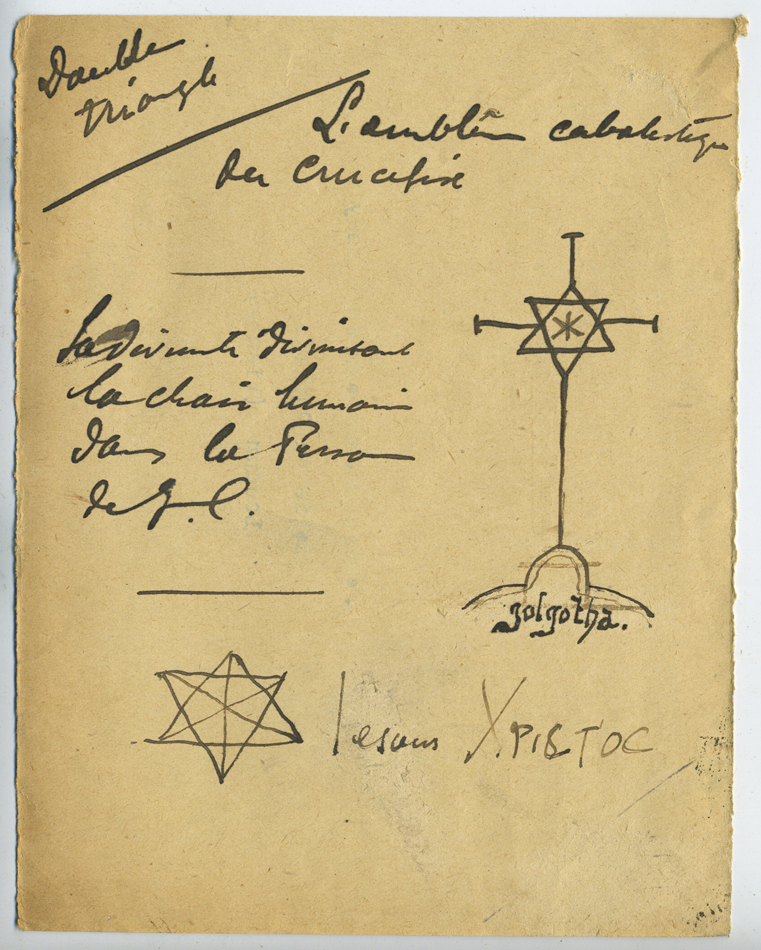 Double
triangle
L'emblème cabalistique
du Crucifix
La divinité divinisant
la chair humaine
dans la Personne
de J. C.
golgotha.
Iesous ΧΡΙΣΤΟC